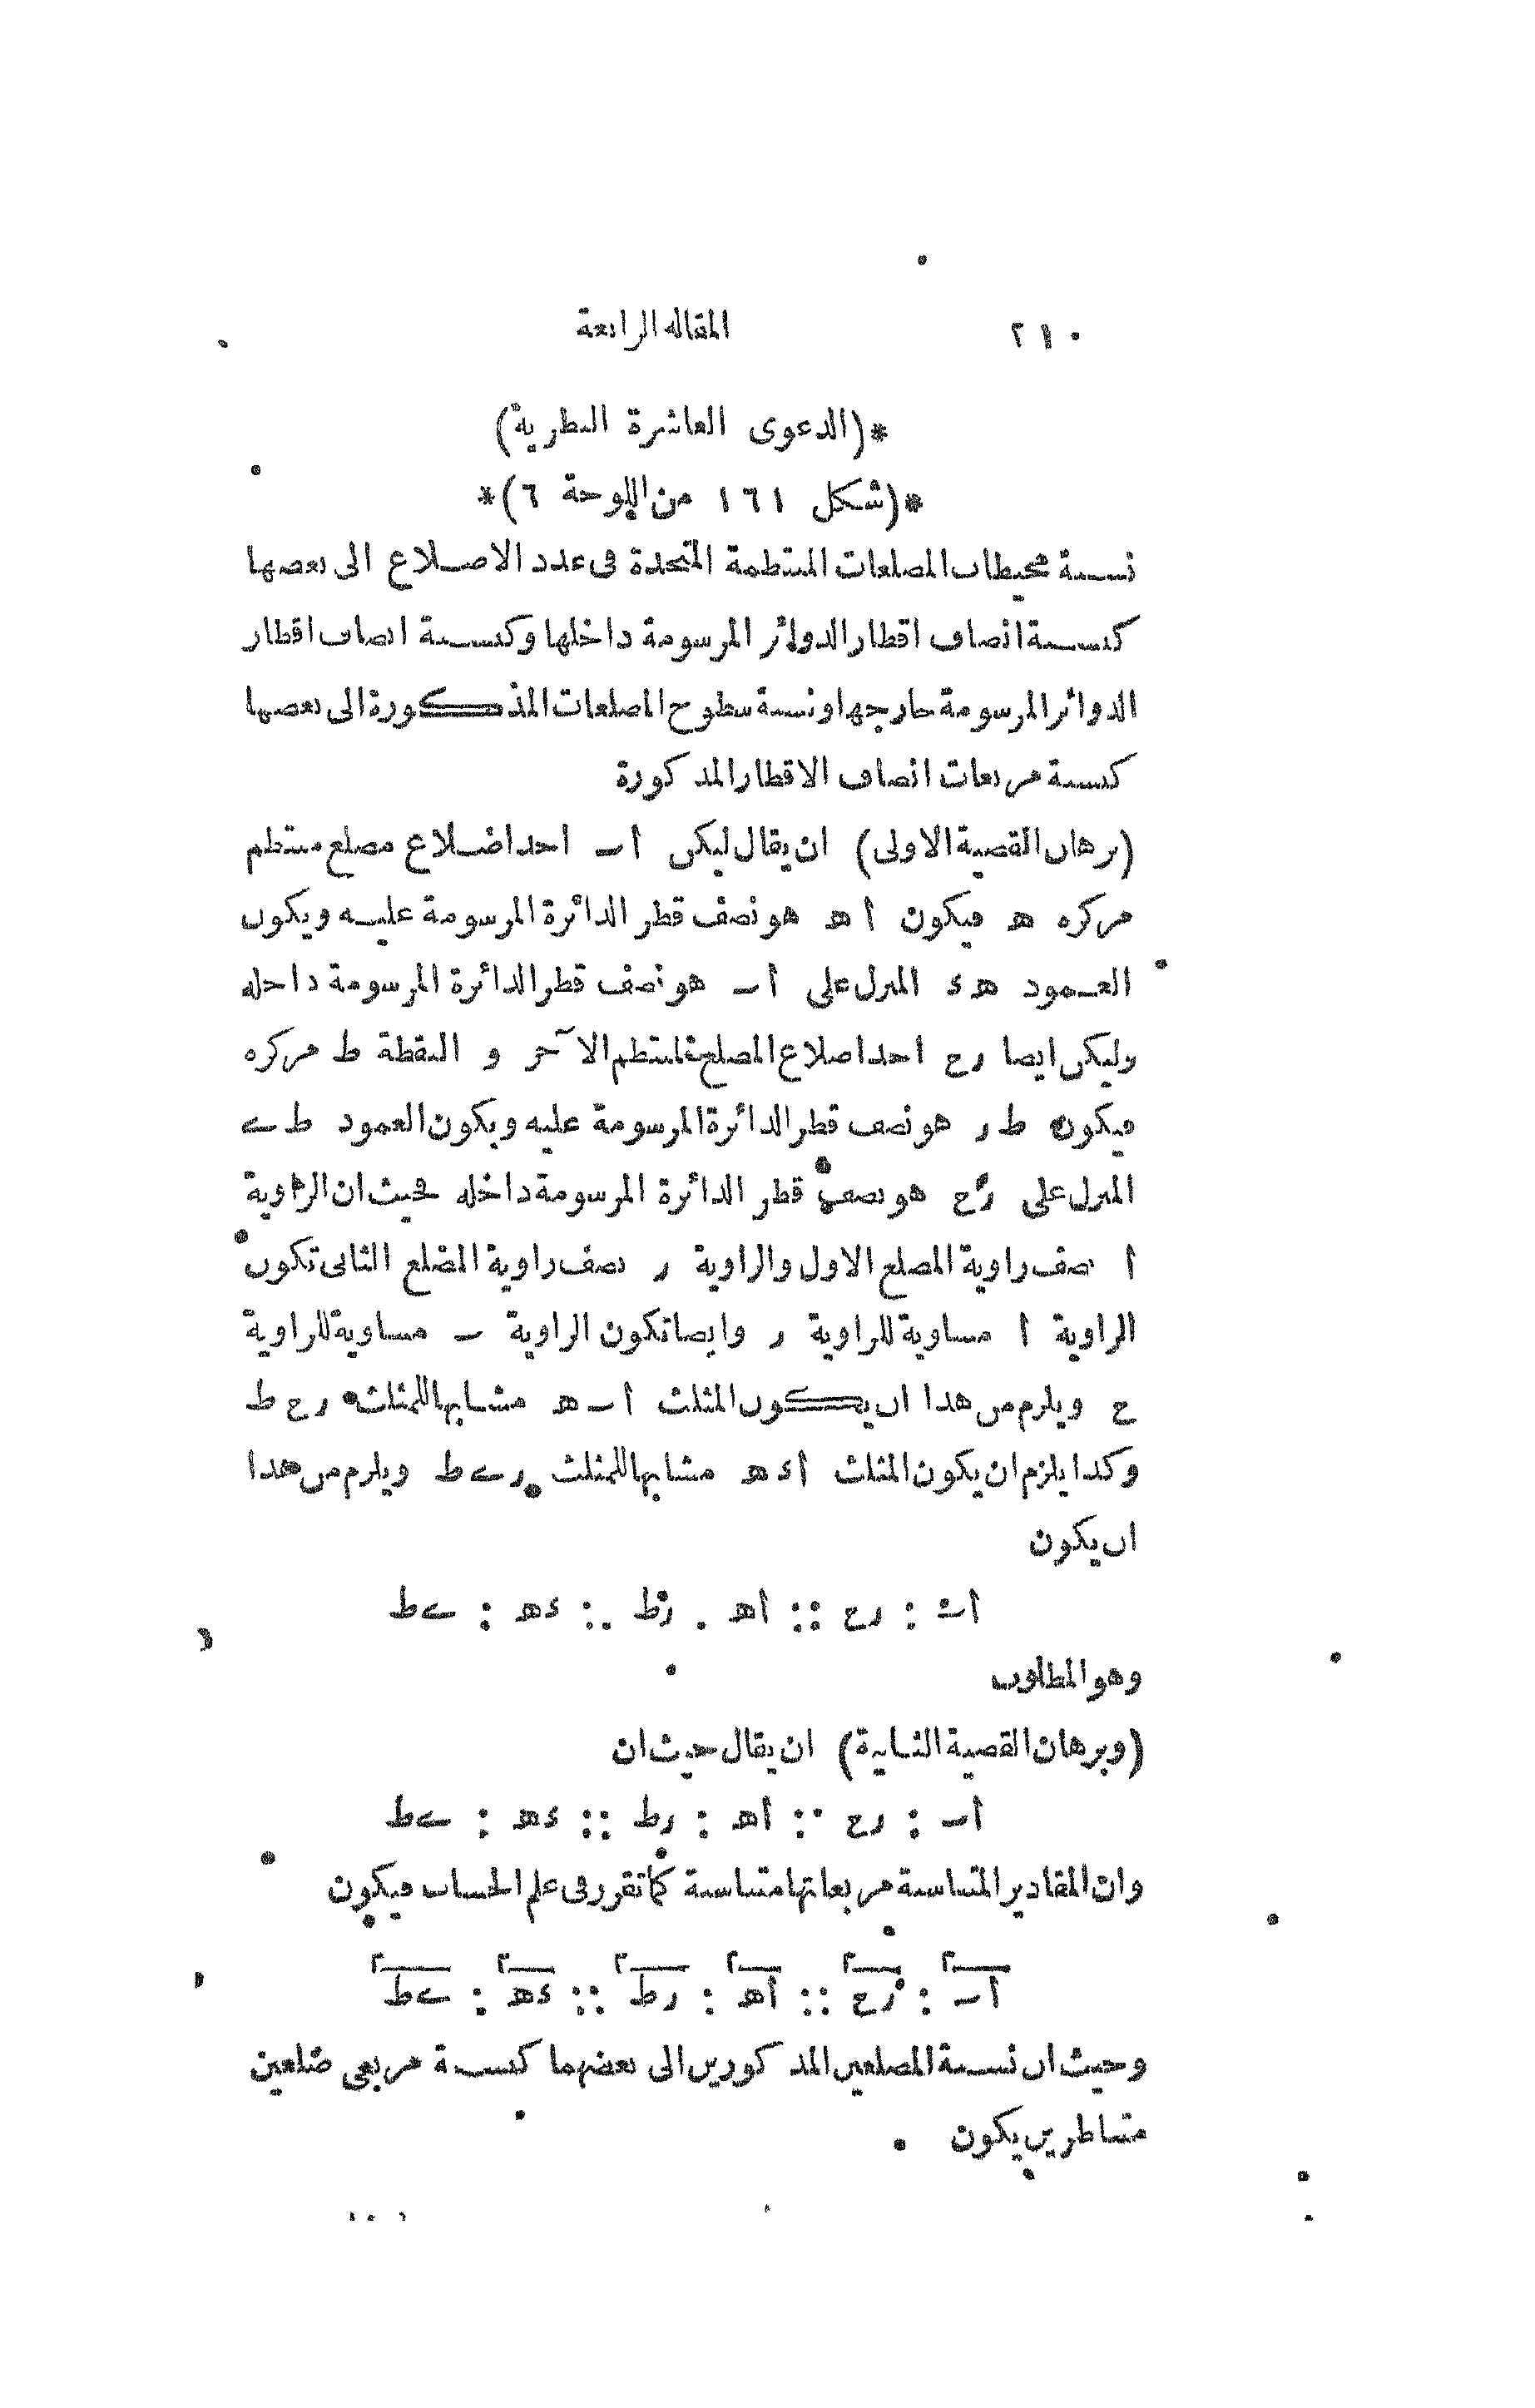 ٢١٠ المقاله الرابعة
*(الدعوى العاشرة النظرية)
*(شكل ١٦١ من اللوحة ٦)*
نسبة محيطات المضلعات المنتظمة المتحدة فى عدد الاضلاع الى بعضها
كنسبة انصاف اقطار الدوائر المرسومة داخلها وكنسبة انصاف اقطار
الدوائر المرسومة خارجها ونسبة سطوح المضلعات المذكورة الى بعضها
كنسبة مربعات انصاف الاقطار المذكورة
(برهان القضية الاولى) ان يقال ليكن اب احد اضلاع مضلع منتظم
مركزه ه فيكون اه هو نصف قطر الدائرة المرسومة عليه ويكون
العمود هد المنزل على اب هو نصف قطر الدائرة المرسومة داخله
وليكن ايضا زح احد اضلاع المضلع المنتظم الآخر و النقطة ط مركزه
فيكون طز هو نصف قطر الدائرة المرسومة عليه ويكون العمود طى
المنزل على زح هو نصف قطر الدائرة المرسومة داخله فحيث ان الزاوية
ا نصف زاوية المضلع الاول والزاوية ز نصف زاوية المضلع الثانى تكون
الزاوية ا مساوية للزاوية ز وايضا تكون الزاوية ب مساوية للزاوية
ح ويلزم من هذا ان يكون المثلث ابه مشابها للمثلث زحط
وكذا يلزم ان يكون المثلث اده مشابها للمثلث زىط ويلزم من هذا
ان يكون
اب : زح :: اه : زط :: ده : ىط
وهو المطلوب
(وبرهان القضية الثانية) ان يقال حيث ان
اب : زح :: اه : زط :: ده : ىط
وان المقادير المتناسبة مربعاتها متناسبة كما تقرر فى علم الحساب فيكون
اب٢ : زح٢ :: اه٢ : زط٢ :: ده٢ : ىط٢
وحيث ان نسبة المضلعين المذكورين الى بعضهما كنسبة مربعى ضلعين
متناظرين يكون